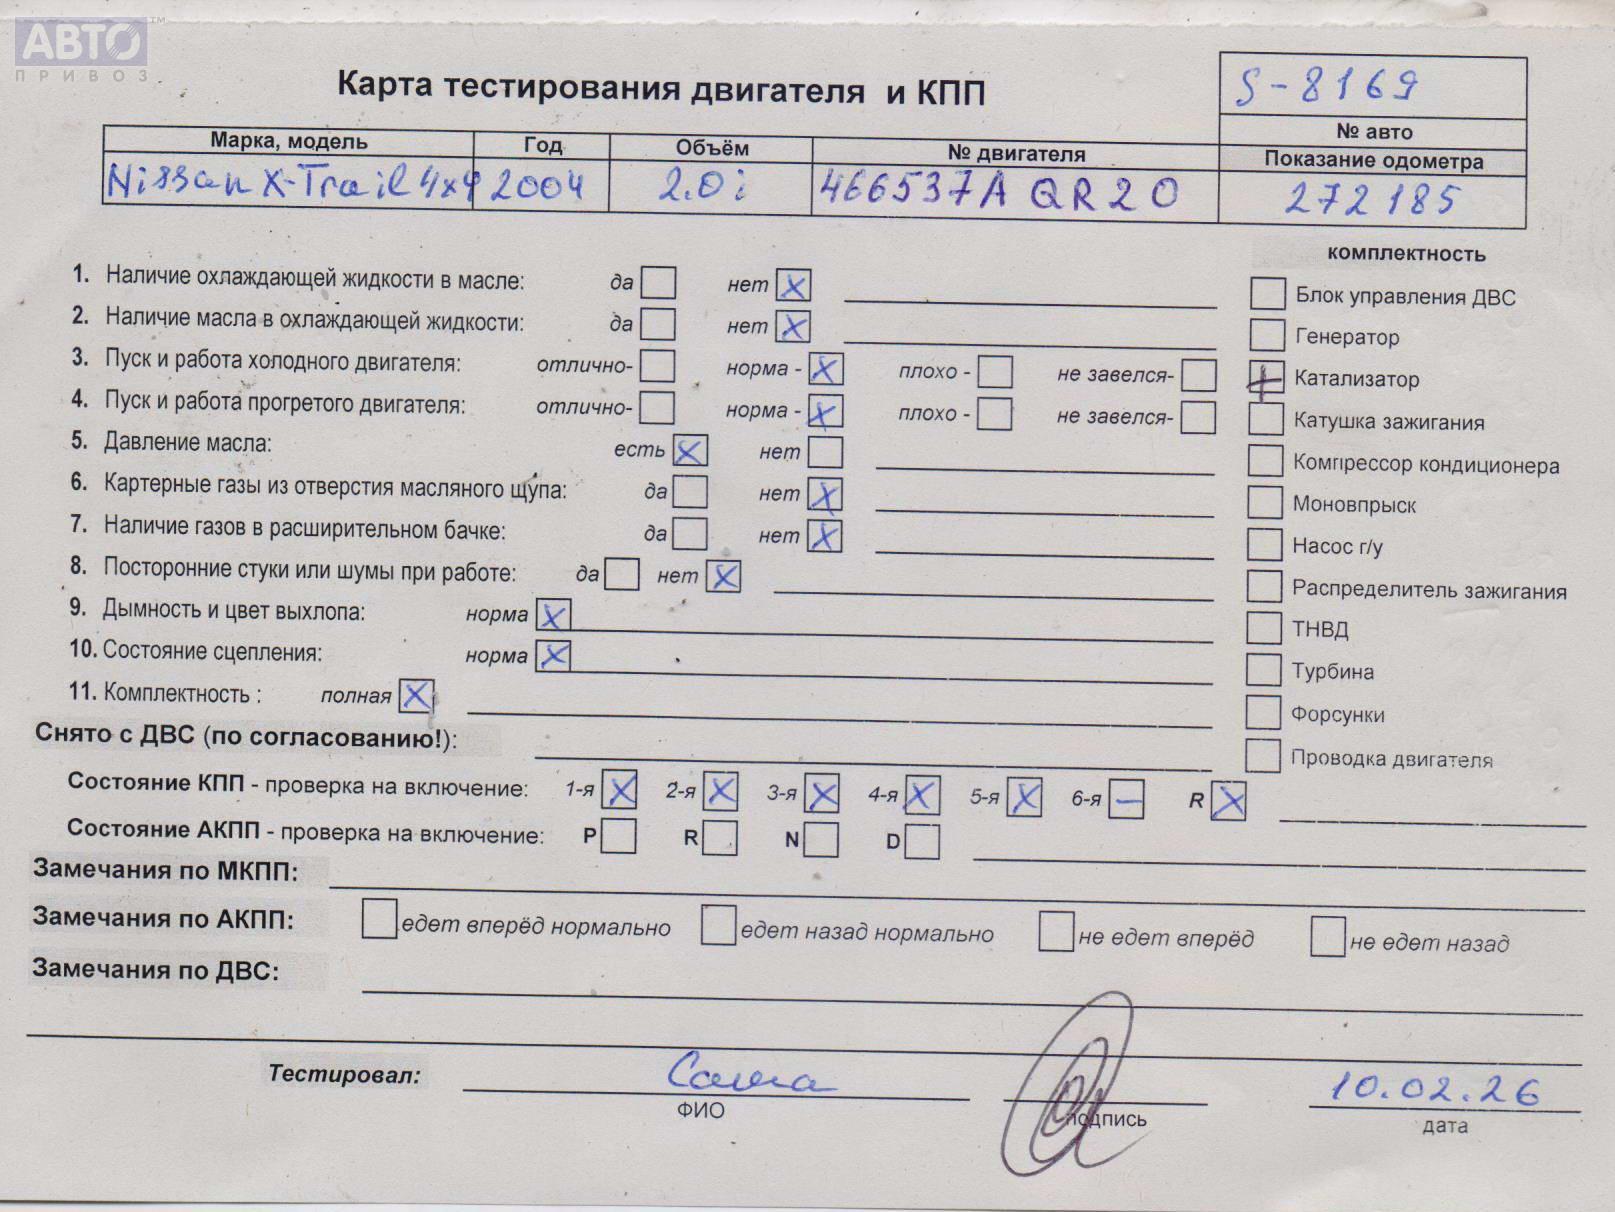 АВТО™
ПРИВОЗ
Карта тестирования двигателя и КПП
S-8169
№ авто
Марка, модель Год Объём № двигателя Показание одометра
Nissan X-Trail 4x4 2004 2.0i 466537A QR20 272185
комплектность
1. Наличие охлаждающей жидкости в масле: да нет X
2. Наличие масла в охлаждающей жидкости: да нет X
3. Пуск и работа холодного двигателя: отлично- норма - X плохо - не завелся-
4. Пуск и работа прогретого двигателя: отлично- норма - X плохо - не завелся-
5. Давление масла: есть X нет
6. Картерные газы из отверстия масляного щупа: да нет X
7. Наличие газов в расширительном бачке: да нет X
8. Посторонние стуки или шумы при работе: да нет X
9. Дымность и цвет выхлопа: норма X
10. Состояние сцепления: норма X
11. Комплектность : полная X
Блок управления ДВС
Генератор
+ Катализатор
Катушка зажигания
Компрессор кондиционера
Моновпрыск
Насос г/у
Распределитель зажигания
ТНВД
Турбина
Форсунки
Проводка двигателя
Снято с ДВС (по согласованию!):
Состояние КПП - проверка на включение: 1-я X 2-я X 3-я X 4-я X 5-я X 6-я – R X
Состояние АКПП - проверка на включение: P R N D
Замечания по МКПП:
Замечания по АКПП: едет вперёд нормально едет назад нормально не едет вперёд не едет назад
Замечания по ДВС:
Тестировал: Саша 10.02.26
ФИО подпись дата